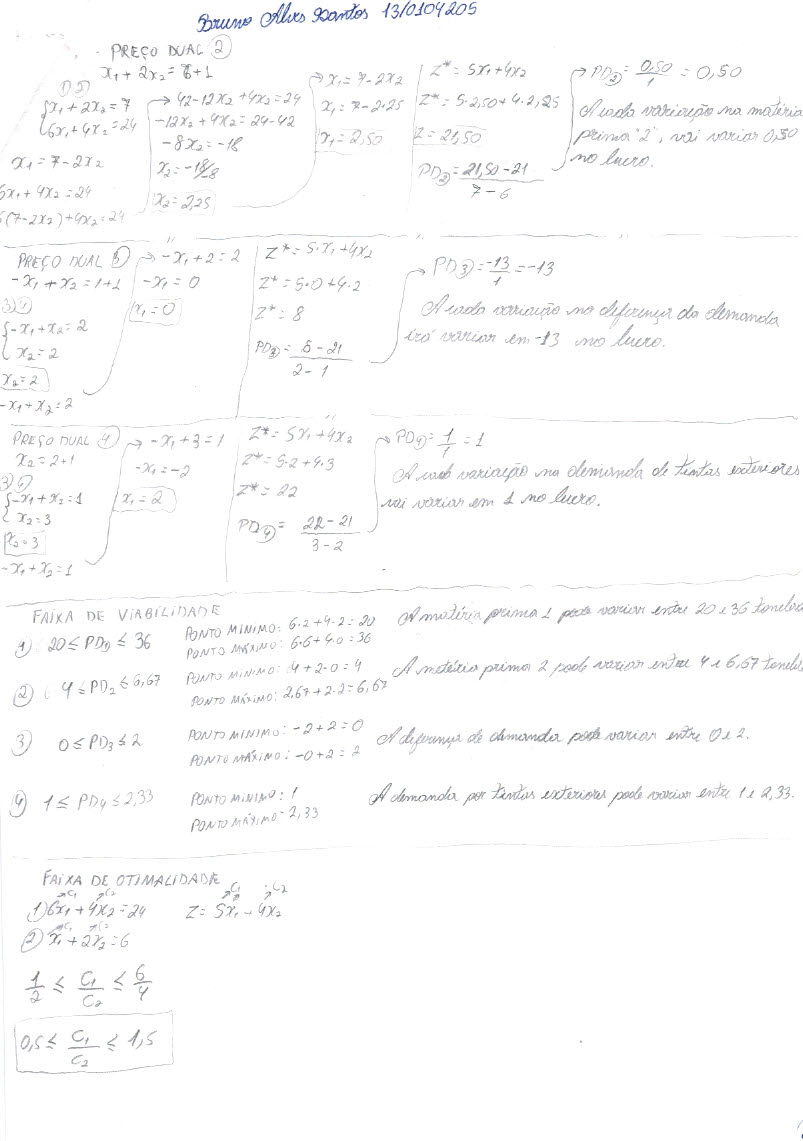 Bruno Alves Santos 13/0104205
PREÇO DUAL ②
x₁ + 2x₂ = 6+1
① ②
{x₁ + 2x₂ = 7
6x₁ + 4x₂ = 24
x₁ = 7 - 2x₂
6x₁ + 4x₂ = 24
6(7-2x₂) + 4x₂ = 24
42 - 12x₂ + 4x₂ = 24
-12x₂ + 4x₂ = 24 - 42
-8x₂ = -18
x₂ = -18/8
x₂ = 2,25
x₁ = 7 - 2x₂
x₁ = 7 - 2·2,25
x₁ = 2,50
Z* = 5x₁ + 4x₂
Z* = 5·2,50 + 4·2,25
Z = 21,50
PD② = 21,50 - 21 / 7 - 6
PD② = 0,50 / 1 = 0,50
A cada variação na matéria
prima "2", vai variar 0,50
no lucro.
PREÇO DUAL ③
-x₁ + x₂ = 1+1
③ ④
{-x₁ + x₂ = 2
x₂ = 2
x₂ = 2
-x₁ + x₂ = 2
-x₁ + 2 = 2
-x₁ = 0
x₁ = 0
Z* = 5·x₁ + 4x₂
Z* = 5·0 + 4·2
Z* = 8
PD③ = 8 - 21 / 2 - 1
PD③ = -13 / 1 = -13
A cada variação na diferença da demanda
irá variar em -13 no lucro.
PREÇO DUAL ④
x₂ = 2+1
③ ④
{-x₁ + x₂ = 1
x₂ = 3
x₂ = 3
-x₁ + x₂ = 1
-x₁ + 3 = 1
-x₁ = -2
x₁ = 2
Z* = 5x₁ + 4x₂
Z* = 5·2 + 4·3
Z* = 22
PD④ = 22 - 21 / 3 - 2
PD④ = 1 / 1 = 1
A cada variação na demanda de tintas exteriores
vai variar em 1 no lucro.
FAIXA DE VIABILIDADE
① 20 ≤ PD① ≤ 36
PONTO MINIMO: 6·2 + 4·2 = 20
PONTO MÁXIMO: 6·6 + 4·0 = 36
A matéria prima 1 pode variar entre 20 e 36
② 4 ≤ PD₂ ≤ 6,67
PONTO MINIMO: 4 + 2·0 = 4
PONTO MÁXIMO: 2,67 + 2·2 = 6,67
A matéria prima 2 pode variar entre 4 e 6,67
③ 0 ≤ PD₃ ≤ 2
PONTO MINIMO: -2 + 2 = 0
PONTO MÁXIMO: -0 + 2 = 2
A diferença de demanda pode variar entre 0 e 2.
④ 1 ≤ PD₄ ≤ 2,33
PONTO MINIMO: 1
PONTO MÁXIMO: 2,33
A demanda por tintas exteriores pode variar entre 1 e 2,33.
FAIXA DE OTIMALIDADE
C₁ C₂ C₁ C₂
① 6x₁ + 4x₂ = 24 Z = 5x₁ - 4x₂
C₁ C₂
② x₁ + 2x₂ = 6
1/2 ≤ C₁/C₂ ≤ 6/4
0,5 ≤ C₁/C₂ ≤ 1,5